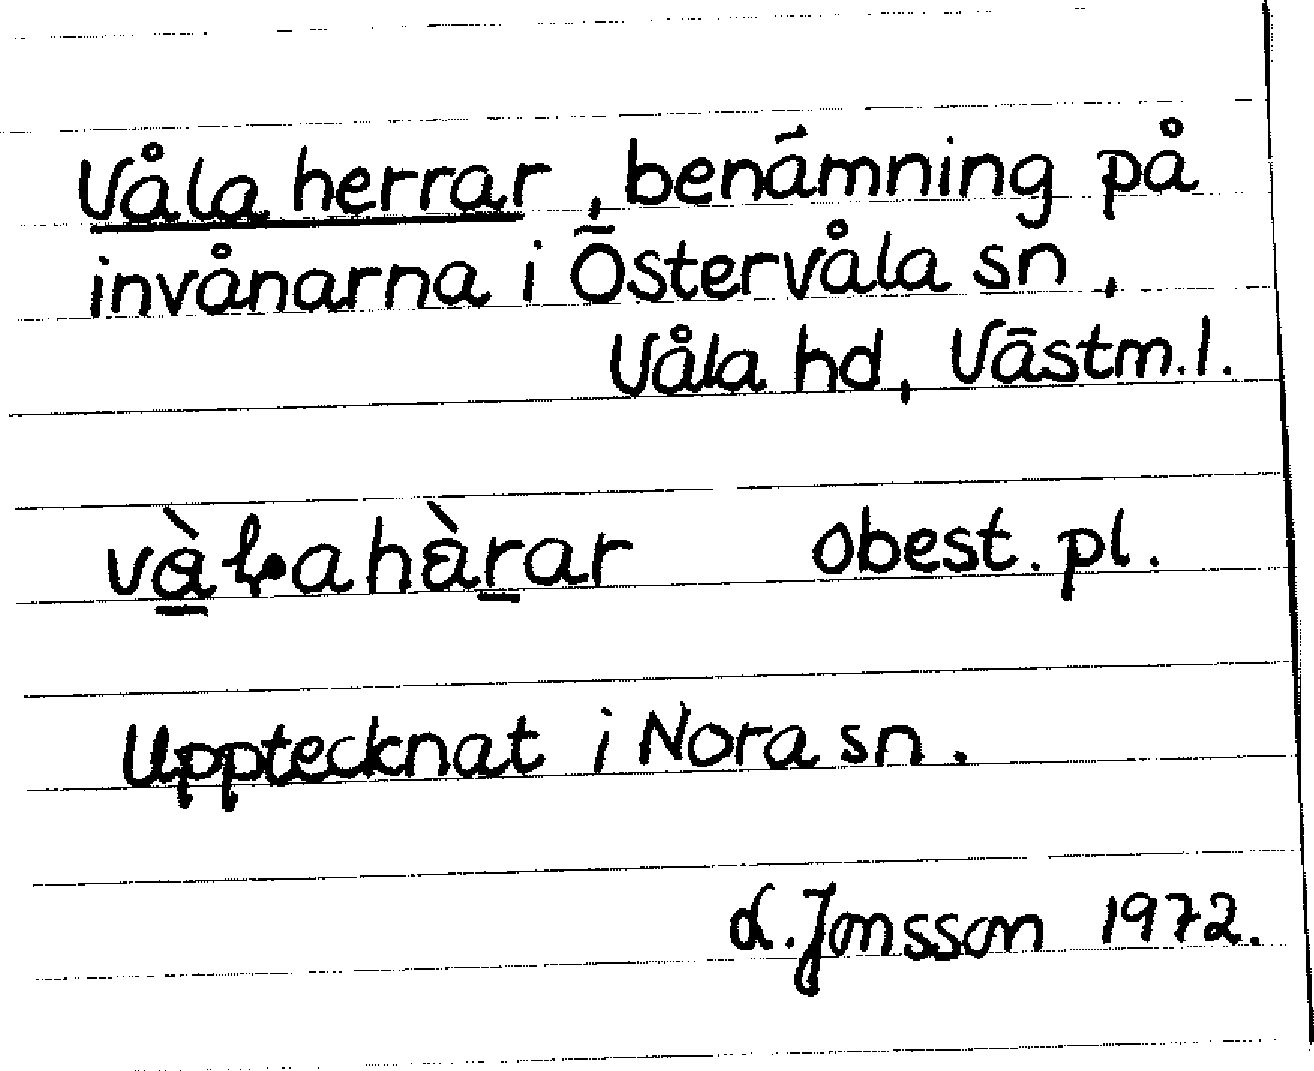 Våla herrar, benämning på
invånarna i Östervåla sn,
Våla hd, Västm.l.
obest. pl.
Upptecknat i Nora sn.
d. Jonsson 1972.